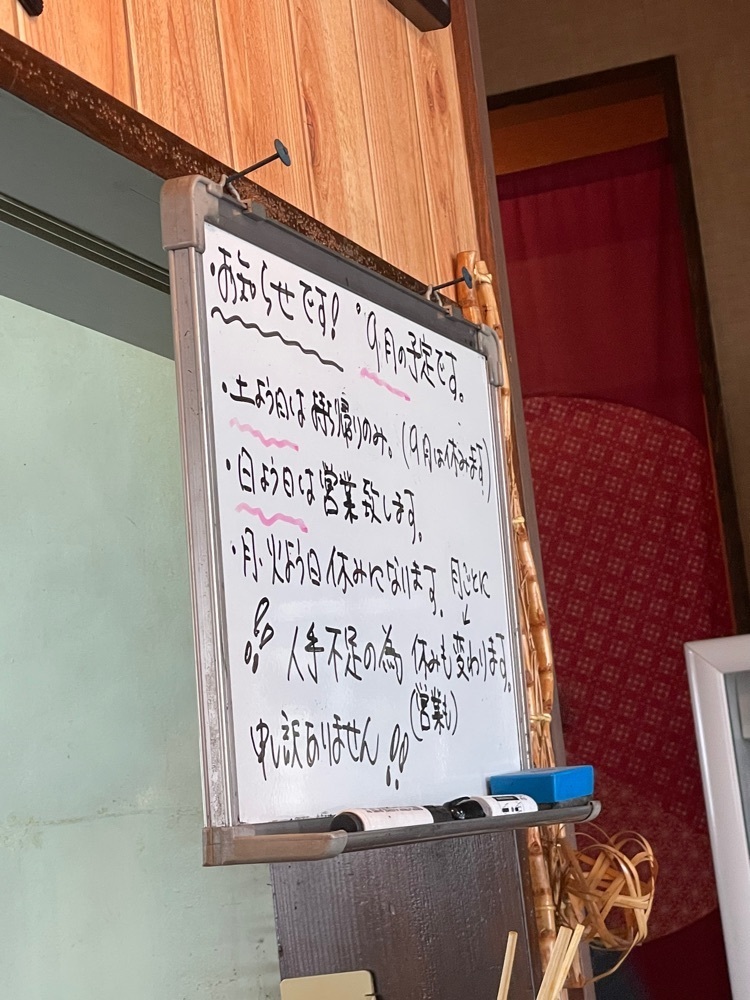 ・お知らせです! ・9月の予定です。
・土よう日は持ち帰りのみ。(9月は休みます)
・日よう日は営業致します。
・月・火よう日休みになります。月ごとに
↓
!! 人手不足の為 休みも変わります。
(営業も)
申し訳ありません!!